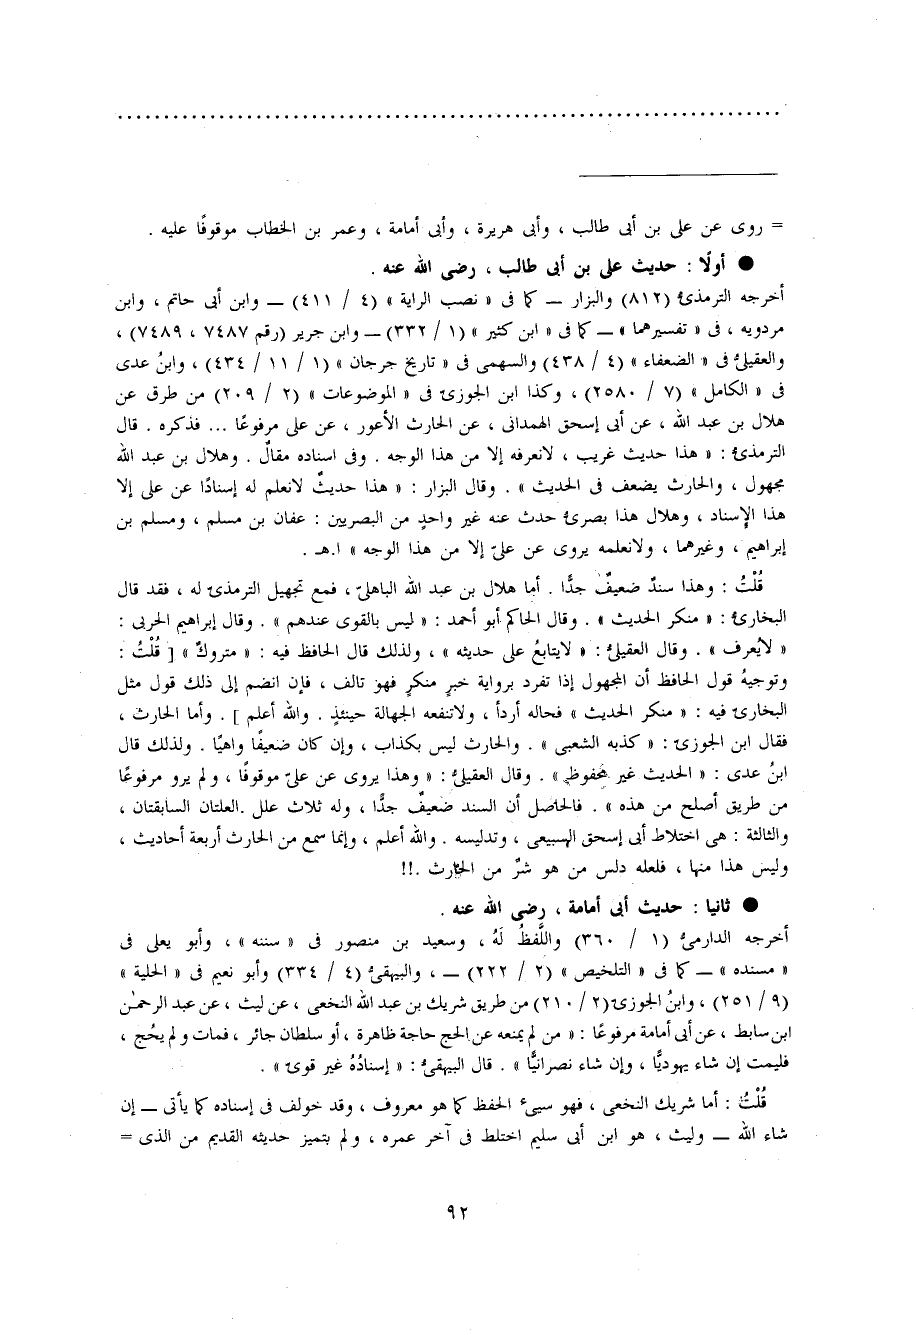 = روى عن على بن أبى طالب ، وأبى هريرة ، وأبى أمامة ، وعمر بن الخطاب موقوفًا عليه .
● أولًا : حديث على بن أبى طالب ، رضى الله عنه .
أخرجه الترمذىُّ (٨١٢) والبزار ــ كما فى « نصب الراية » (٤ / ٤١١) ــ وابن أبى حاتم ، وابن
مردويه ، فى « تفسيرهما » ــ كما فى « ابن كثير » (١ / ٣٣٢) ــ وابن جرير (رقم ٧٤٨٧ ، ٧٤٨٩) ،
والعقيلىُّ فى « الضعفاء » (٤ / ٤٣٨) والسهمى فى « تاريخ جرجان » (١ / ١١ / ٤٣٤) ، وابنُ عدى
فى « الكامل » (٧ / ٢٥٨٠) ، وكذا ابن الجوزىّ فى « الموضوعات » (٢ / ٢٠٩) من طرق عن
هلال بن عبد الله ، عن أبى إسحق الهمدانى ، عن الحارث الأعور ، عن على مرفوعًا ... فذكره . قال
الترمذىُّ : « هذا حديث غريب ، لانعرفه إلا من هذا الوجه . وفى اسناده مقالٌ . وهلال بن عبد الله
مجهول ، والحارث يضعف فى الحديث » . وقال البزار : « هذا حديثٌ لانعلم له إسنادًا عن على إلا
هذا الإسناد ، وهلال هذا بصرىٌّ حدث عنه غير واحدٍ من البصريين : عفان بن مسلم ، ومسلم بن
إبراهيم ، وغيرهما ، ولانعلمه يروى عن علىّ إلا من هذا الوجه » ا.هـ .
قُلْتُ : وهذا سندٌ ضعيفٌ جدًّا . أما هلال بن عبد الله الباهلىّ ، فمع تجهيل الترمذىّ له ، فقد قال
البخارىُّ : « منكر الحديث » . وقال الحاكم أبو أحمد : « ليس بالقوى عندهم » . وقال إبراهيم الحربى :
« لايُعرف » . وقال العقيلىُّ : « لايتابعُ على حديثه » ، ولذلك قال الحافظ فيه : « متروكٌ » [ قُلْتُ :
وتوجيهُ قول الحافظ أن المجهول إذا تفرد برواية خبرٍ منكرٍ فهو تالف ، فإن انضم إلى ذلك قول مثل
البخارىّ فيه : « منكر الحديث » فحاله أردأ ، ولاتنفعه الجهالة حينئذٍ . والله أعلم ] . وأما الحارث ،
فقال ابن الجوزىّ : « كذبه الشعبى » . والحارث ليس بكذاب ، وإن كان ضعيفًا واهيًا . ولذلك قال
ابنُ عدى : « الحديث غير محفوظ » . وقال العقيلىُّ : « وهذا يروى عن علىّ موقوفًا ، ولم يرو مرفوعًا
من طريق أصلح من هذه » . فالحاصل أن السند ضعيفٌ جدًّا ، وله ثلاث علل .العلتان السابقتان ،
والثالثة : هى اختلاط أبى إسحق السبيعى ، وتدليسه . والله أعلم ، وإنما سمع من الحارث أربعة أحاديث ،
وليس هذا منها ، فلعله دلس من هو شرٌ من الحارث .!!
● ثانيا : حديث أبى أمامة ، رضى الله عنه .
أخرجه الدارمىُّ (١ / ٣٦٠) واللَّفظُ لَهُ ، وسعيد بن منصور فى « سننه » ، وأبو يعلى فى
« مسنده » ــ كما فى « التلخيص » (٢ / ٢٢٢) ــ ، والبيهقىُّ (٤ / ٣٣٤) وأبو نعيم فى « الحلية »
(٩ / ٢٥١) ، وابنُ الجوزىّ (٢ / ٢١٠) من طريق شريك بن عبد الله النخعى ، عن ليث ، عن عبد الرحمٰن
ابن سابط ، عن أبى أمامة مرفوعًا : « من لم يمنعه عن الحج حاجة ظاهرة ، أو سلطان جائر ، فمات ولم يحُج ،
فليمت إن شاء يهوديًّا ، وإن شاء نصرانيًّا » . قال البيهقىُّ : « إسنادُهُ غير قوىّ » .
قُلْتُ : أما شريك النخعى ، فهو سيىء الحفظ كما هو معروف ، وقد خولف فى إسناده كما يأتى ــ إن
شاء الله ــ وليث ، هو ابن أبى سليم اختلط فى آخر عمره ، ولم يتميز حديثه القديم من الذى =
٩٢